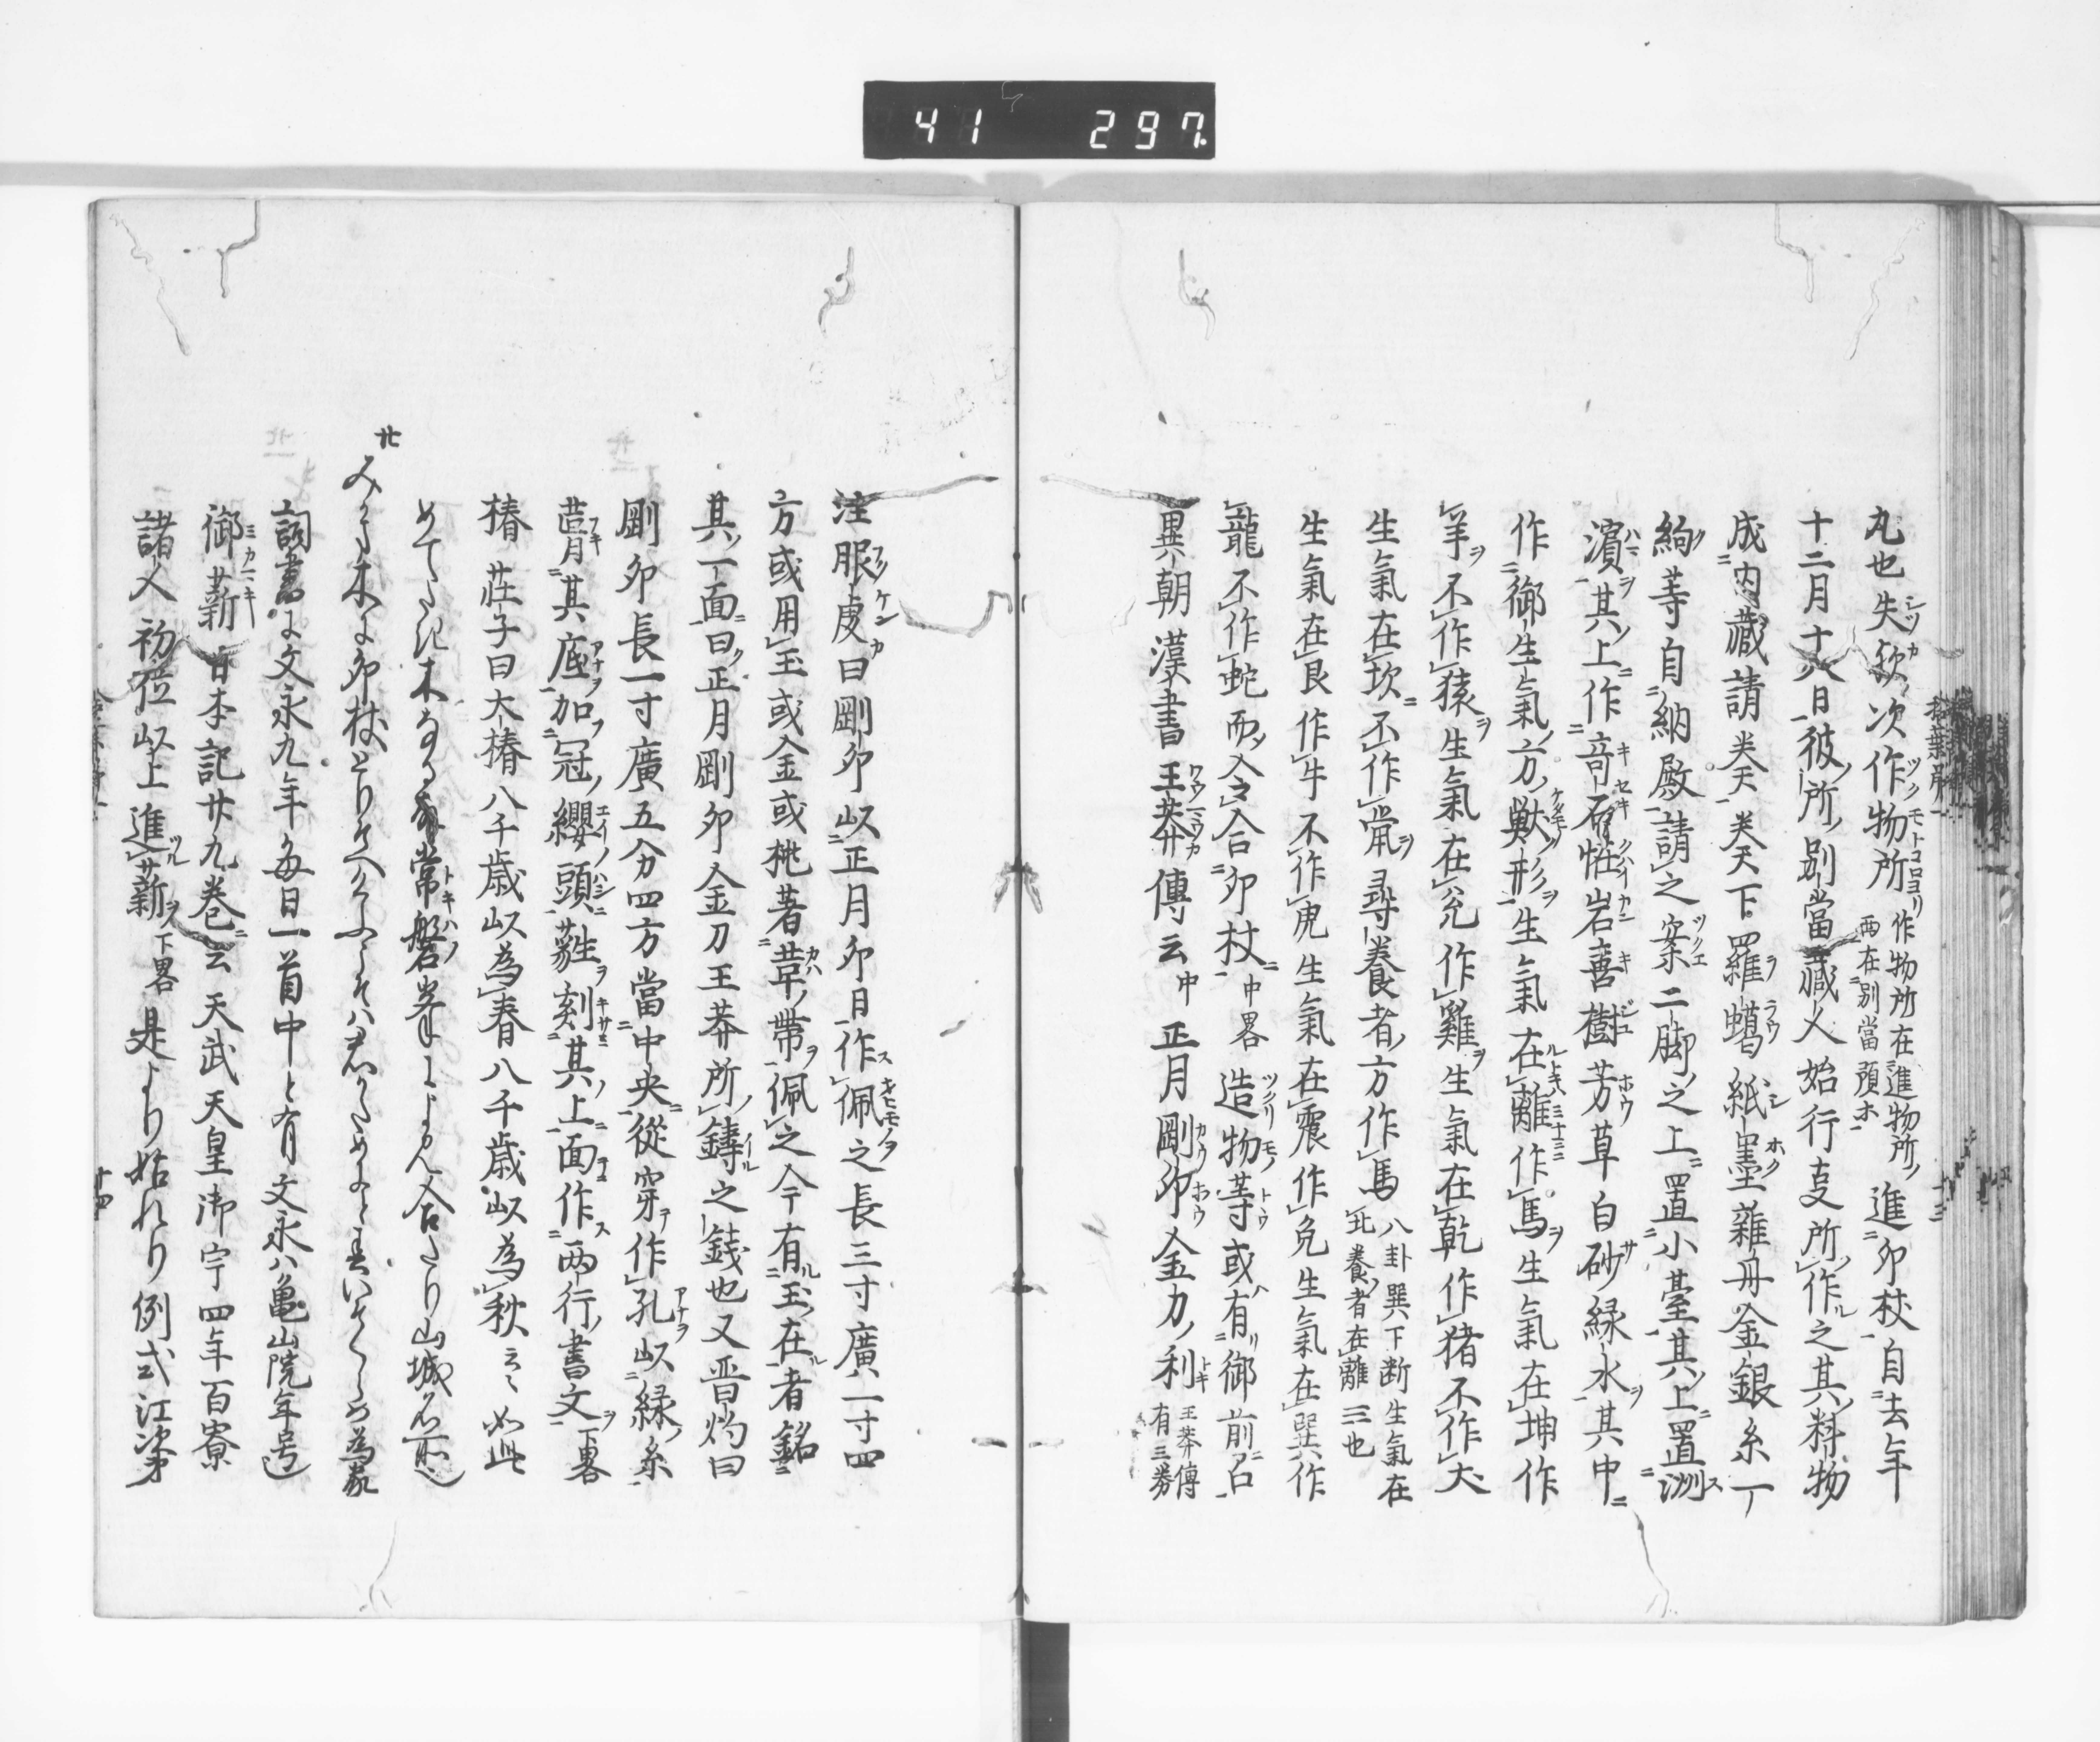 41 297.
丸也失欤次作物所作物所在進物所両在別當預ホ進卯杖自去年
十二月十八日彼所別當蔵人始行支所作之其料物
成内蔵請奏天奏天下羅蝎紙墨雑丹金銀糸一丁
絢等自納殿請之案二脚之上置小臺其上置洲
濱其上作奇石恠岩喜樹芳草白砂緑水其中
作御生氣方獣形生氣在離作馬生氣在坤作
羊不作猿生氣在兊作雞生氣在乾作猪不作犬
生氣在坎不作䑕尋養者方作馬八卦巽下断生氣在北養者在離三也
生氣在艮作牛不作虎生氣在震作兔生氣在巽作
龍不作蛇而令合卯杖中畧造物等或有御前召
異朝漢書王莽傳云中正月剛卯金刀利王莽傳有三劵
注服虔曰剛卯以正月卯日作佩之長三寸廣一寸四
方或用玉或金或桃著葦帶佩之今有玉在者銘
其一面曰正月剛卯金刀王莽所鑄之錢也又晋灼曰
剛卯長一寸廣五分四方當中央從穿作孔以緑糸
葺其底加冠纓頭蕤刻其上面作両行書文下畧
椿 莊子曰大椿八千歳以為春八千歳以為秋云々如此
めてたき木なる故常磐峯によみ合たり山城名所也
廿
詞書に文永九年毎日一首中と有文永ハ亀山院年号也
御薪 日本記廿九巻云天武天皇御宇四年百寮
諸人初位以上進薪下畧是より始れり例式江次第